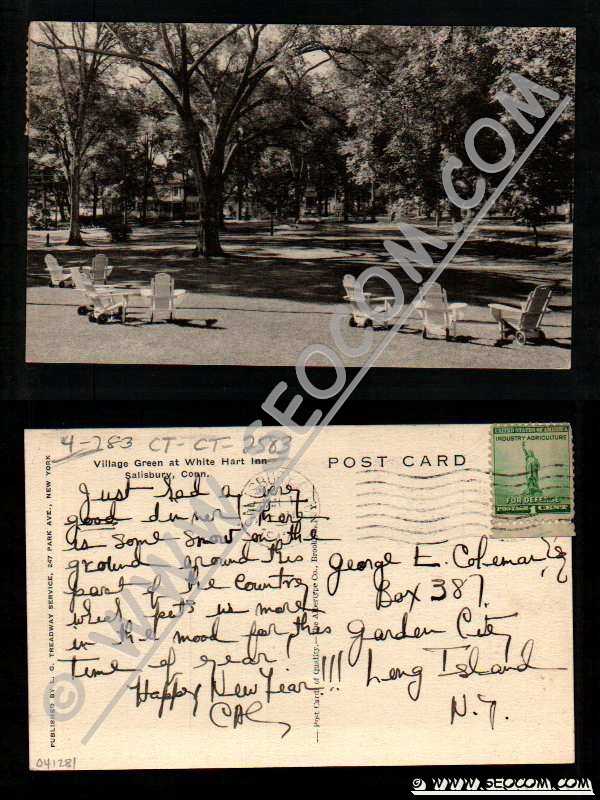 © WWW.SEOCOM.COM
4-283 CT-CT-2583
Village Green at White Hart Inn
Salisbury, Conn.
POST CARD
UNITED STATES OF AMERICA
INDUSTRY AGRICULTURE
FOR DEFENSE
POSTAGE 1 CENT
Just had a very
good dinner. There
is some snow on the
ground around this
part of the Country
which puts us more
in the mood for this
time of year
Happy New Year!!!
CAL
George E. Coleman
Box 387
Garden City
Long Island
N.Y.
PUBLISHED BY L. G. TREADWAY SERVICE, 247 PARK AVE., NEW YORK
Post Cards of Quality. — The Albertype Co., Brooklyn, N. Y.
041281
© WWW.SEOCOM.COM